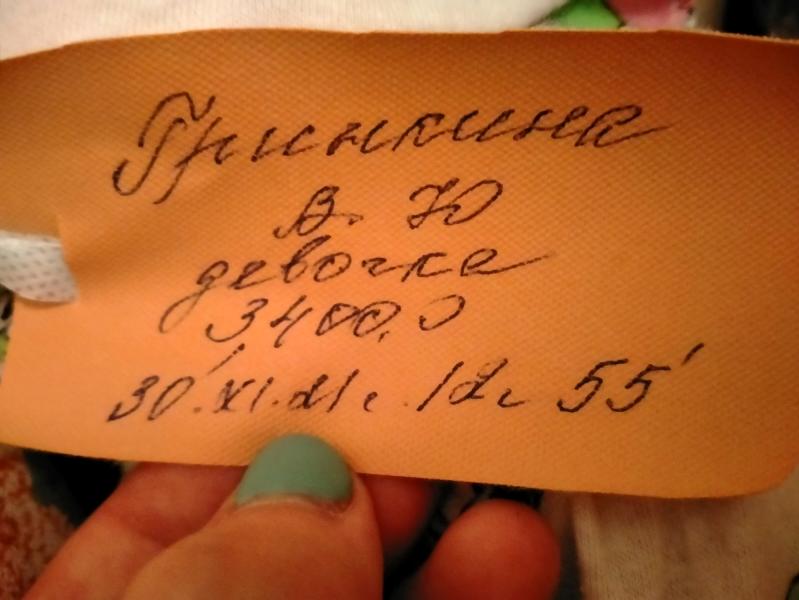 Гринкина
В. Ю
девочка
3400,0
30.XI.21г. 12ч 55'